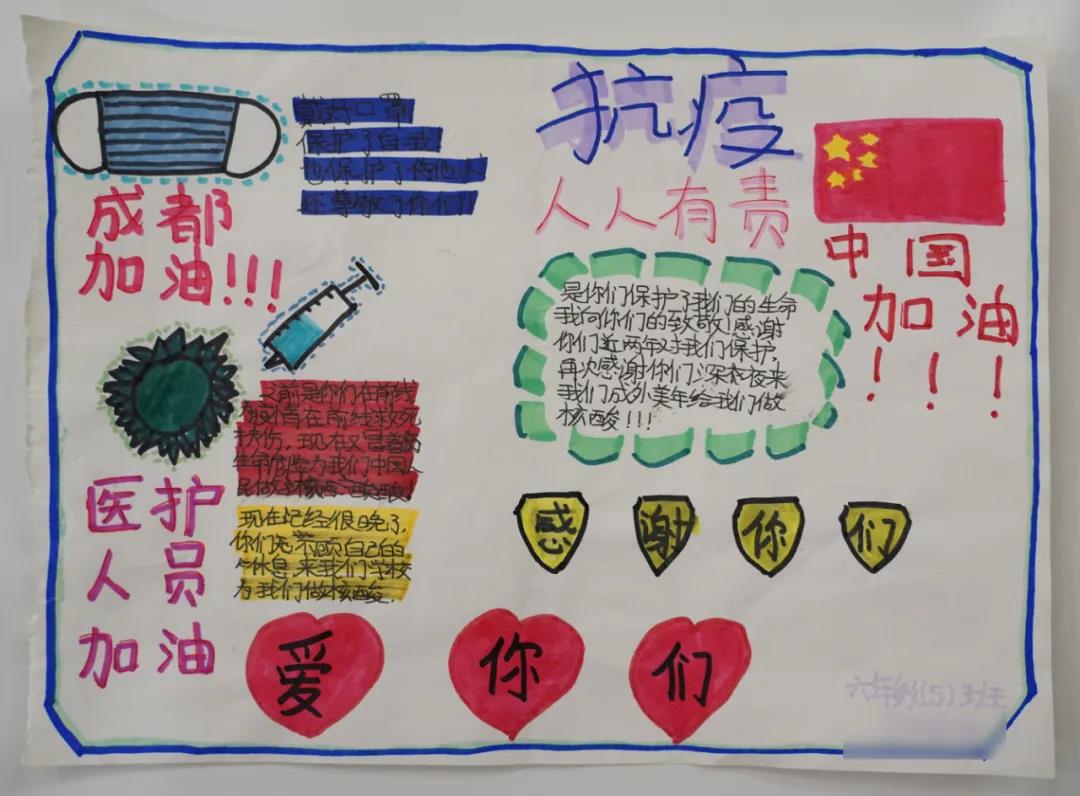 戴好口罩
保护了自我
也保护了其他人
还尊敬了你们!
成都
加油!!!
抗疫
人人有责
中国
加油
!!!
是你们保护了我们的生命
我向你们的致敬!感谢
你们近两年对我们保护,
再次感谢你们深夜来
我们成外美年给我们做
核酸!!!
之前是你们在前线
疫情在前线救死
扶伤,现在又冒着
生命危险为我们中国人
民做核酸!
现在已经很晚了,
你们无不顾自己的
休息,来我们学校
为我们做核酸.
医护
人员
加油
感谢你们
爱你们
六年级(5)班